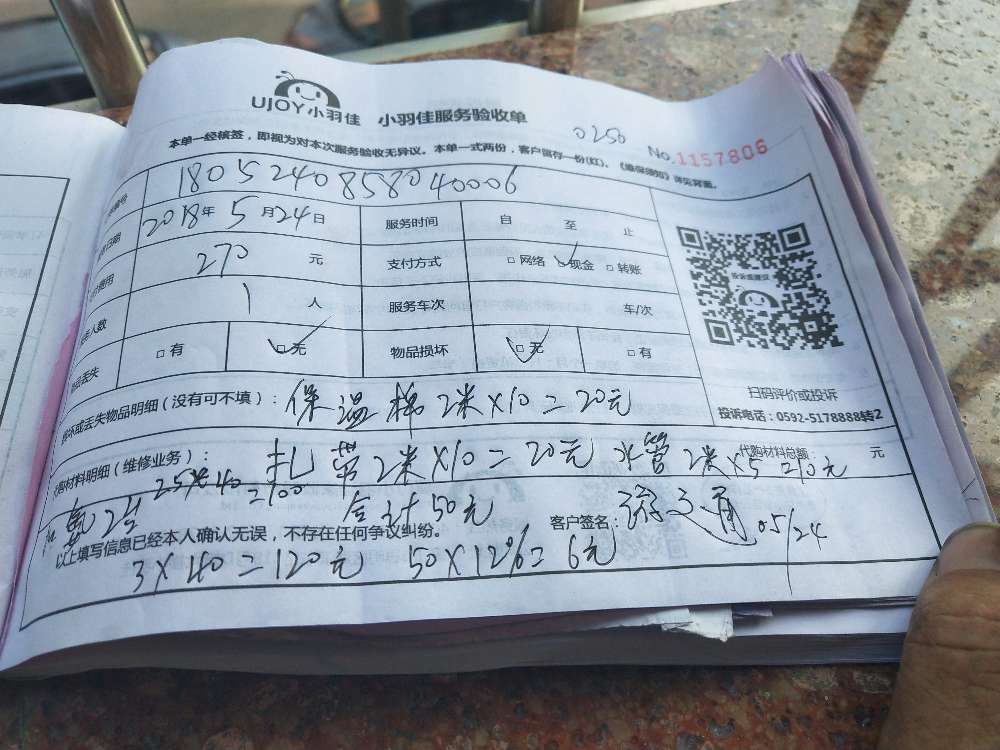 UJOY小羽佳 小羽佳服务验收单
0250 No.1157806
本单一经核签，即视为对本次服务验收无异议。本单一式两份，客户留存一份(红)。《维保须知》详见背面。
编号 1805240858040006
日期 2018年 5月24日 服务时间 自 至 止
费用 270 元 支付方式 □网络 ☑现金 □转账
人数 1 人 服务车次 车/次
丢失 □有 ☑无 物品损坏 ☑无 □有
投诉或建议
扫码评价或投诉
投诉电话：0592-5178888转2
损坏或丢失物品明细（没有可不填）： 保温棉2米×10=20元
材料明细（维修业务）： 扎带2米×10=20元 水管2米×5=10元 代购材料总额： 元
氟2 25×40=100 合计50元 客户签名： 05/24
以上填写信息已经本人确认无误，不存在任何争议纠纷。
3×40=120元 50×12%=6元